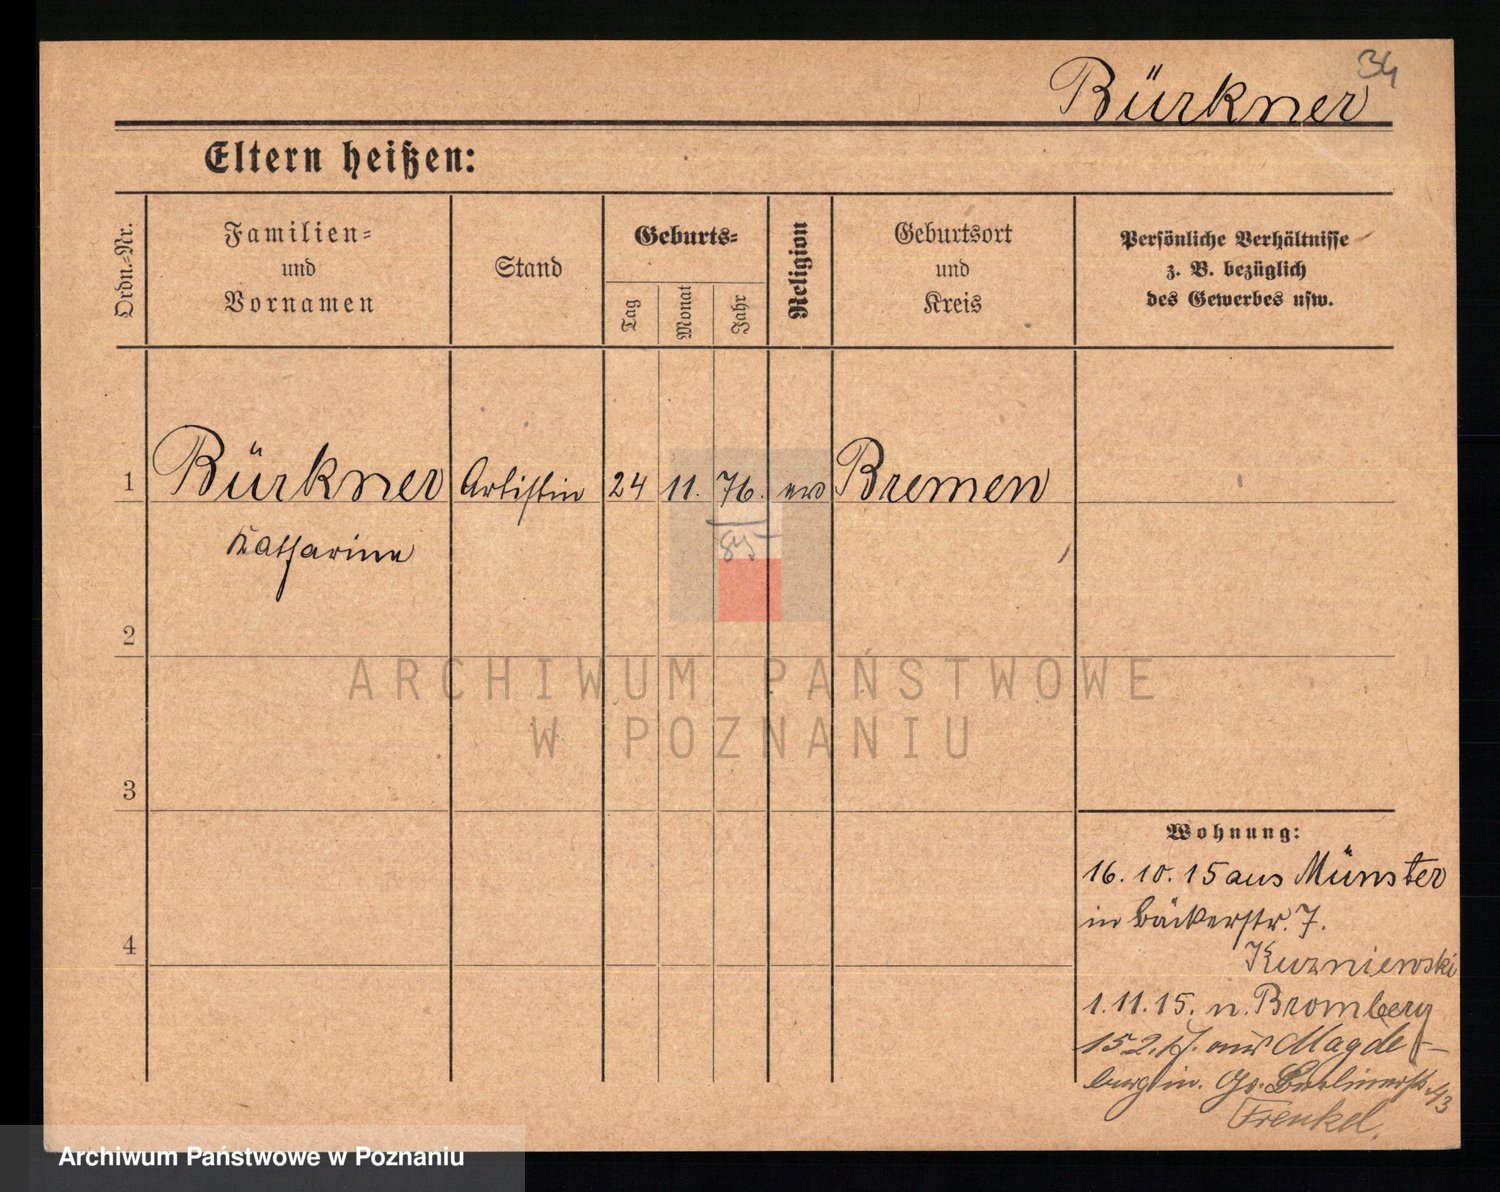 34
Bürkner
Eltern heißen:
Ordn.-Nr.
Familien-
und
Vornamen
Stand
Geburts-
Tag
Monat
Jahr
Religion
Geburtsort
und
Kreis
Persönliche Verhältnisse
z. B. bezüglich
des Gewerbes usw.
1 Bürkner Artistin 24 11. 76. Bremen
85
Katharina
2
3
4
Wohnung:
16. 10. 15 aus Münster
in Bäckerstr. 7.
Kuzniewski
1. 11. 15. n. Bromberg
15 2. 17. aus Magde-
burg in. Gr. Berlinerstr. 43
Frenkel.
ARCHIWUM PAŃSTWOWE
W POZNANIU
Archiwum Państwowe w Poznaniu